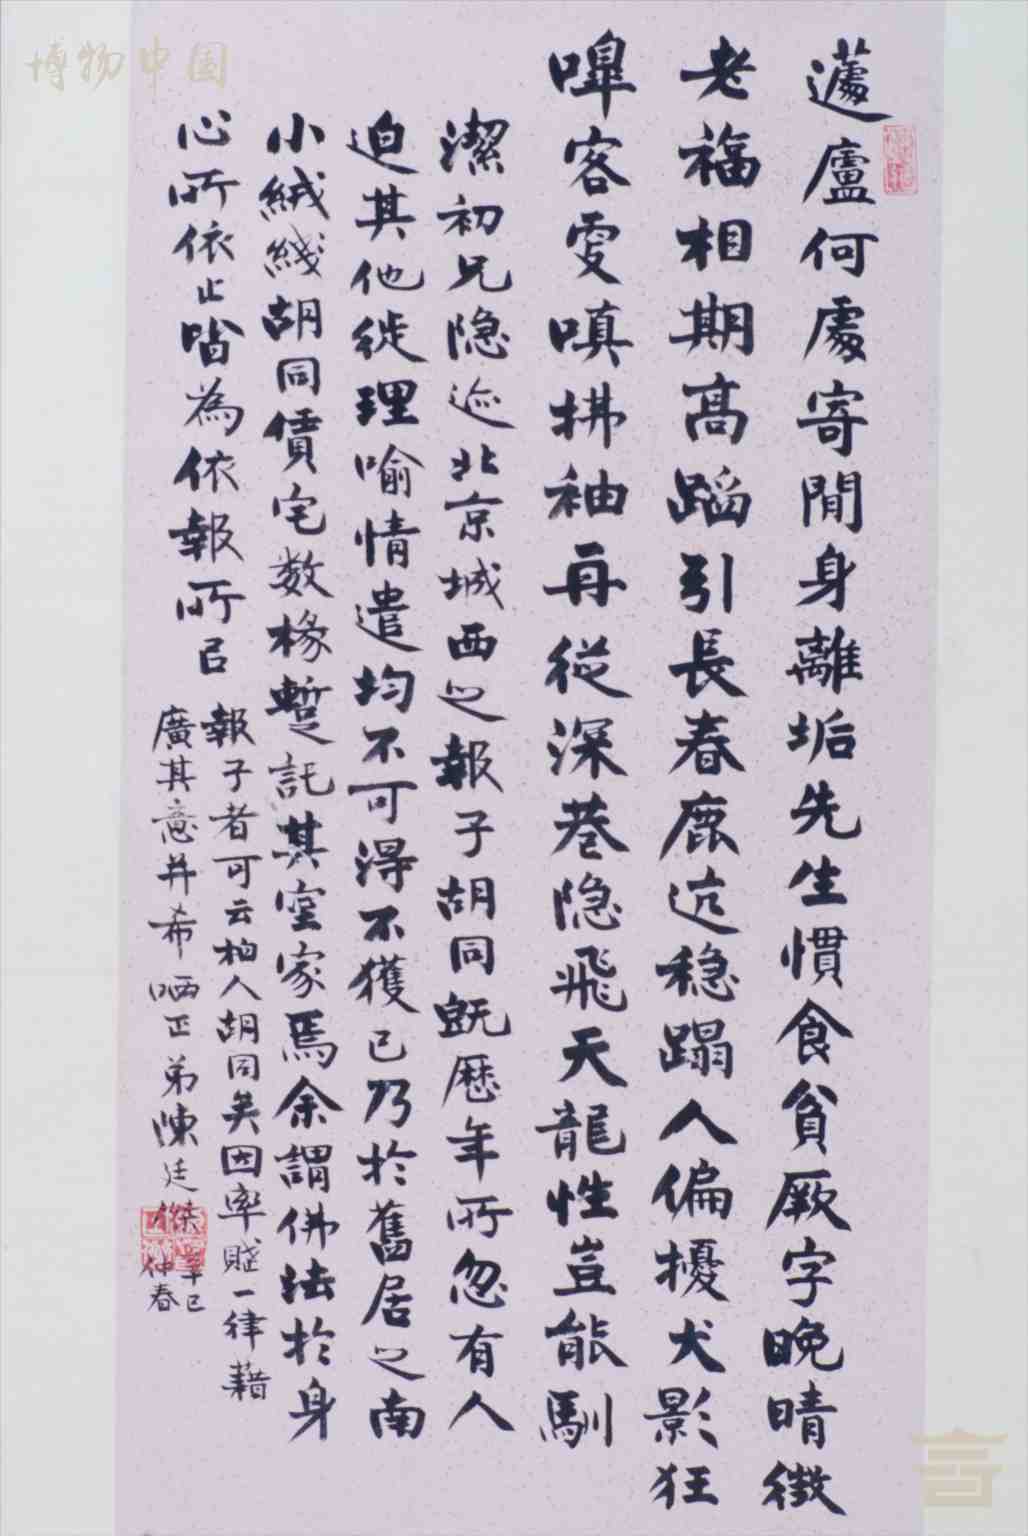 蘧廬何處寄閒身離垢先生慣食貧厥字晚晴徵
老福相期高蹈引長春鹿迒穩蹋人偏擾犬影狂
嘷客叟嗔拂袖再從深巷隐飛天龍性豈能馴
潔初兄隐迹北京城西之報子胡同既歷年所忽有人
迫其他徙理喻情遣均不可得不獲已乃於舊居之南
小絨綫胡同僨宅数椽暫託其室家焉余謂佛法於身
心所依止皆為依報所已
報子者可云柏人胡同矣因率賤一律藉
廣其意并希哂正弟陳廷傑辛巳
仲春
博物中国